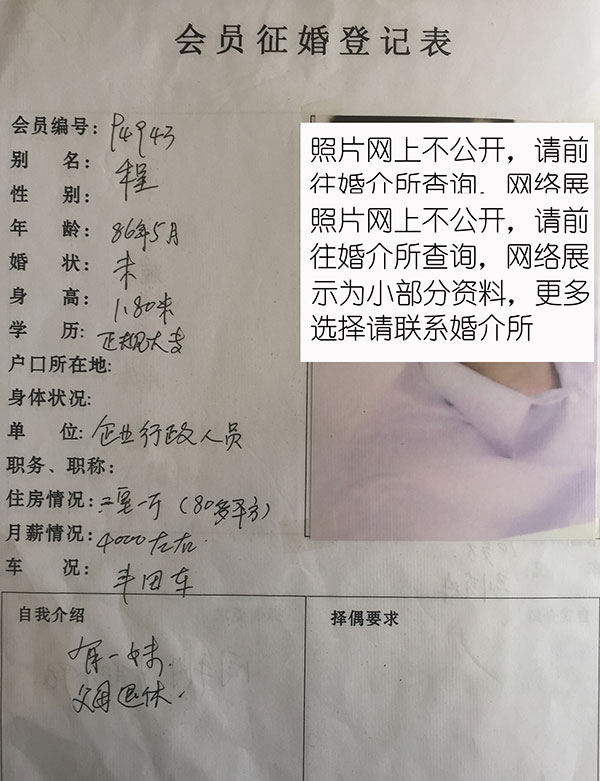 会员征婚登记表
会员编号: P4943
别 名: 程
性 别:
年 龄: 86年5月
婚 状: 未
身 高: 1.80米
学 历: 正规大专
户口所在地:
身体状况:
单 位: 企业行政人员
职务、职称:
住房情况: 二室一厅（80多平方）
月薪情况: 4000左右.
车 况: 丰田车
照片网上不公开，请前
往婚介所查询，网络展
照片网上不公开，请前
往婚介所查询，网络展
示为小部分资料，更多
选择请联系婚介所
自我介绍
有一妹.
父母退休.
择偶要求